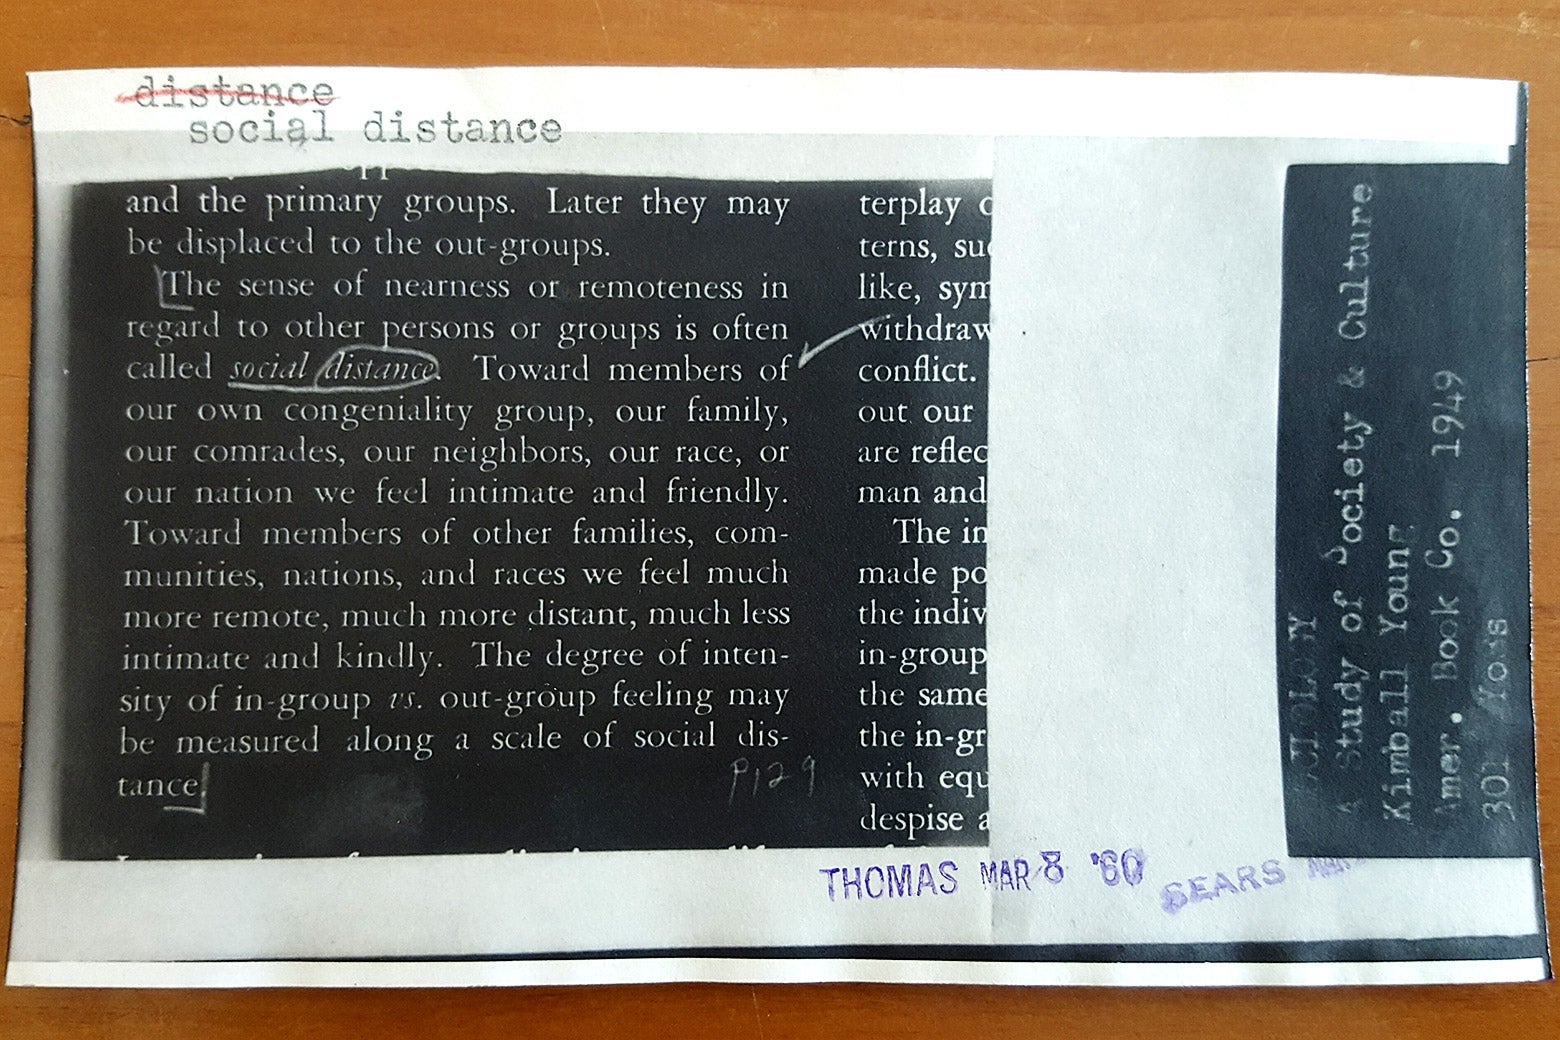 distance
social distance
and the primary groups. Later they may
be displaced to the out-groups.
The sense of nearness or remoteness in
regard to other persons or groups is often
called social distance. Toward members of
our own congeniality group, our family,
our comrades, our neighbors, our race, or
our nation we feel intimate and friendly.
Toward members of other families, com-
munities, nations, and races we feel much
more remote, much more distant, much less
intimate and kindly. The degree of inten-
sity of in-group vs. out-group feeling may
be measured along a scale of social dis-
tance.
P129
terplay
terns, suc
like, sym
withdraw
conflict.
out our
are reflec
man and
The in
made po
the indiv
in-group
the same
the in-gr
with equ
despise a
THOMAS MAR 8 '60
SEARS MAR
A Study of Society & Culture
Kimball Young
Amer. Book Co. 1949
301 Yo8s